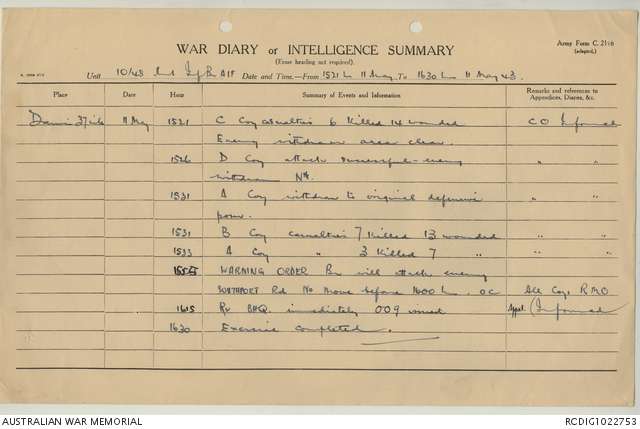 Army Form C. 2118
(adapted.)
WAR DIARY or INTELLIGENCE SUMMARY
(Erase heading not required).
Unit 10/48 Aust Inf Bn AIF Date and Time.—From 1521 hrs 11 May To 1630 hrs 11 May 43.
Place Date Hour Summary of Events and Information Remarks and references to Appendices, Diaries, &c.
11 May 1521 C Coy casualties 6 killed 14 wounded CO Informed
Enemy withdrawn area clear.
1526 D Coy attack successful—enemy " "
withdrawn Nth.
1531 A Coy withdrawn to original defensive " "
posn.
1531 B Coy casualties 7 killed 13 wounded " "
1533 A Coy " 3 killed 7 " " "
1555 WARNING ORDER Bn will attack enemy
Rd No move before 1600 hrs. OC All Coys, RMO
1615 Rv BHQ. immediately 009 Appt. (Informed
1630 Exercise completed.
AUSTRALIAN WAR MEMORIAL
RCDIG1022753